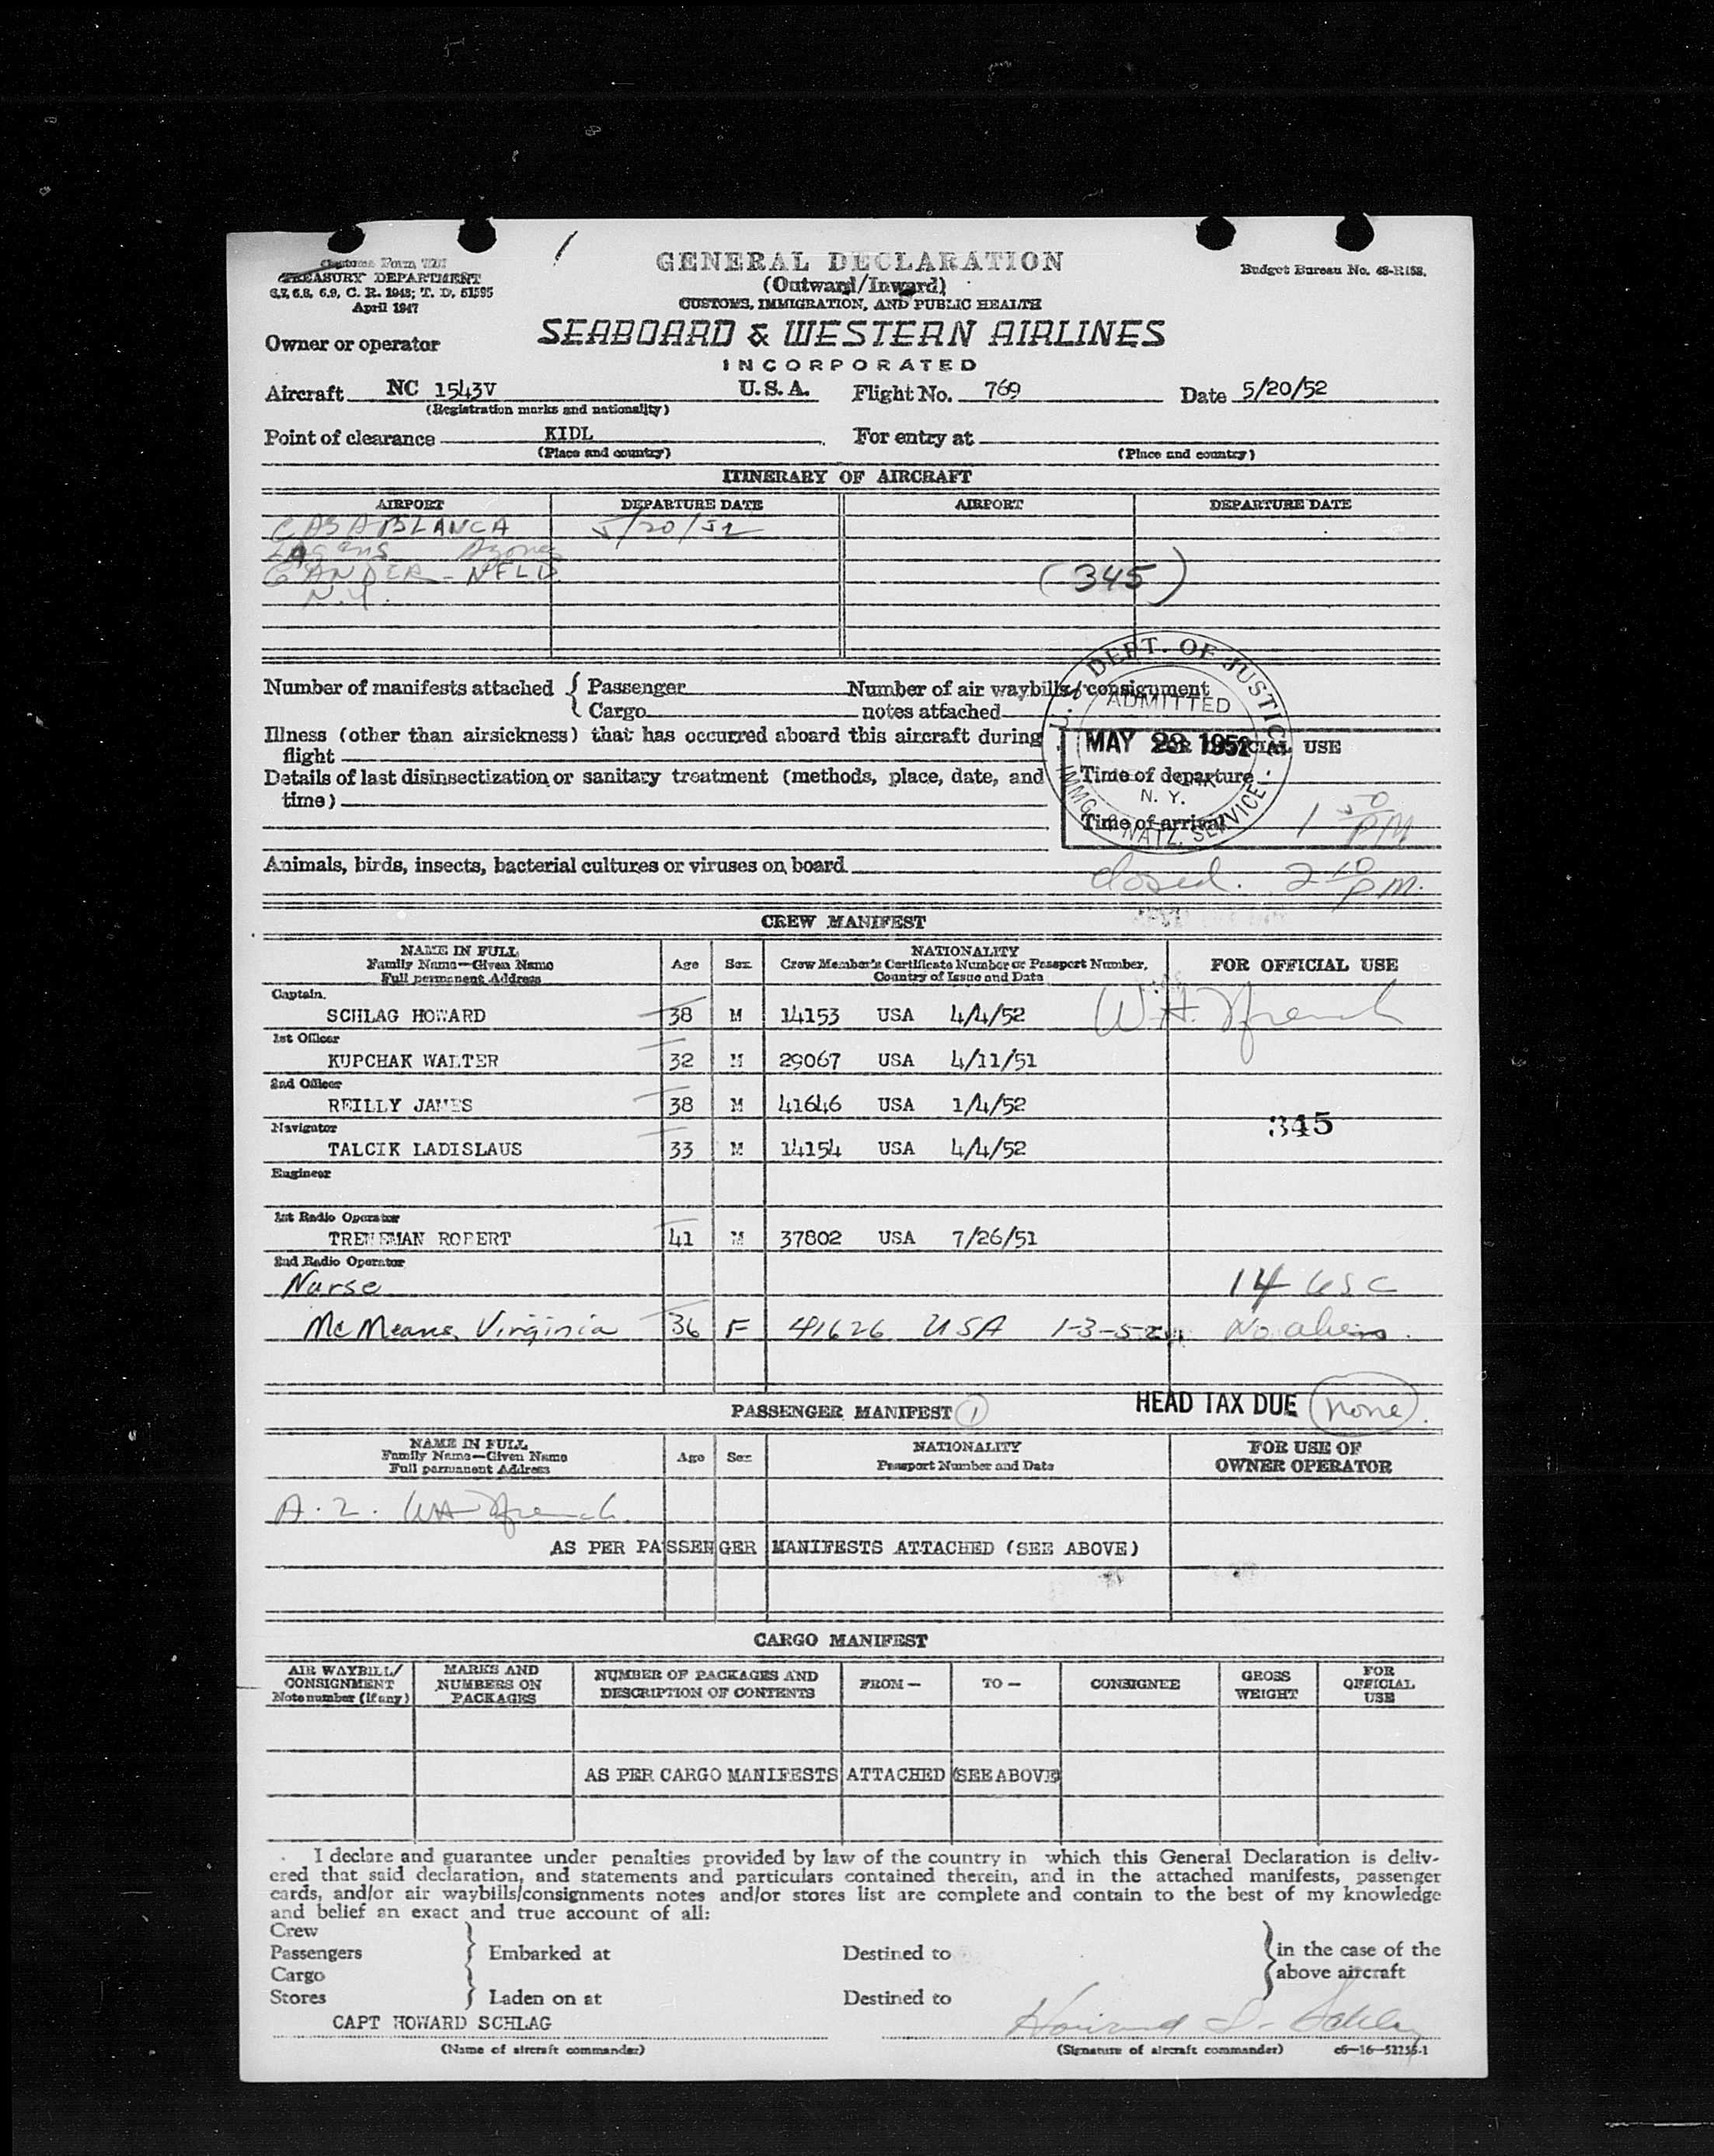 Customs Form 7507
TREASURY DEPARTMENT
6.7, 6.8, 6.9, C. R. 1943; T. D. 51595
April 1947
GENERAL DECLARATION
(Outward/Inward)
CUSTOMS, IMMIGRATION, AND PUBLIC HEALTH
Budget Bureau No. 48-R158.
Owner or operator SEABOARD & WESTERN AIRLINES
INCORPORATED
Aircraft NC 1543V U.S.A. Flight No. 769 Date 5/20/52
(Registration marks and nationality)
Point of clearance KIDL For entry at
(Place and country) (Place and country)
ITINERARY OF AIRCRAFT
AIRPORT DEPARTURE DATE AIRPORT DEPARTURE DATE
CASABLANCA 5/20/52
Azores
GANDER - NFLD (345)
N.Y.
Number of manifests attached { Passenger Number of air waybills/consignment
Cargo notes attached
U. S. DEPT. OF JUSTICE
ADMITTED
MAY 23 1952
N. Y.
IMMG. & NATZ. SERVICE
Illness (other than airsickness) that has occurred aboard this aircraft during
flight
FOR OFFICIAL USE
Details of last disinsectization or sanitary treatment (methods, place, date, and
time)
Time of departure
Time of arrival 1 50 PM
Animals, birds, insects, bacterial cultures or viruses on board closed. 2 10 PM.
CREW MANIFEST
NAME IN FULL Age Sex NATIONALITY FOR OFFICIAL USE
Family Name—Given Name Crew Member's Certificate Number or Passport Number,
Full permanent Address Country of Issue and Date
Captain
SCHLAG HOWARD 38 M 14153 USA 4/4/52 W.H. French
1st Officer
KUPCHAK WALTER 32 M 29067 USA 4/11/51
2nd Officer
REILLY JAMES 38 M 41646 USA 1/4/52
345
Navigator
TALCIK LADISLAUS 33 M 14154 USA 4/4/52
Engineer
1st Radio Operator
ROBERT 41 M 37802 USA 7/26/51
2nd Radio Operator
Nurse 14 USC
McMeans, Virginia 36 F 41626 USA 1-3-52 No aliens.
HEAD TAX DUE none.
PASSENGER MANIFEST 1
NAME IN FULL Age Sex NATIONALITY FOR USE OF
Family Name—Given Name Passport Number and Date OWNER OPERATOR
Full permanent Address
W.H. French
AS PER PASSENGER MANIFESTS ATTACHED (SEE ABOVE)
CARGO MANIFEST
AIR WAYBILL/ MARKS AND NUMBER OF PACKAGES AND FROM— TO— CONSIGNEE GROSS FOR
CONSIGNMENT NUMBERS ON DESCRIPTION OF CONTENTS WEIGHT OFFICIAL
Note number (if any) PACKAGES USE
AS PER CARGO MANIFESTS ATTACHED (SEE ABOVE)
I declare and guarantee under penalties provided by law of the country in which this General Declaration is deliv-
ered that said declaration, and statements and particulars contained therein, and in the attached manifests, passenger
cards, and/or air waybills/consignments notes and/or stores list are complete and contain to the best of my knowledge
and belief an exact and true account of all:
Crew
Passengers } Embarked at Destined to } in the case of the
Cargo above aircraft
Stores } Laden on at Destined to
CAPT HOWARD SCHLAG
(Name of aircraft commander) (Signature of aircraft commander) c6—16—52255-1